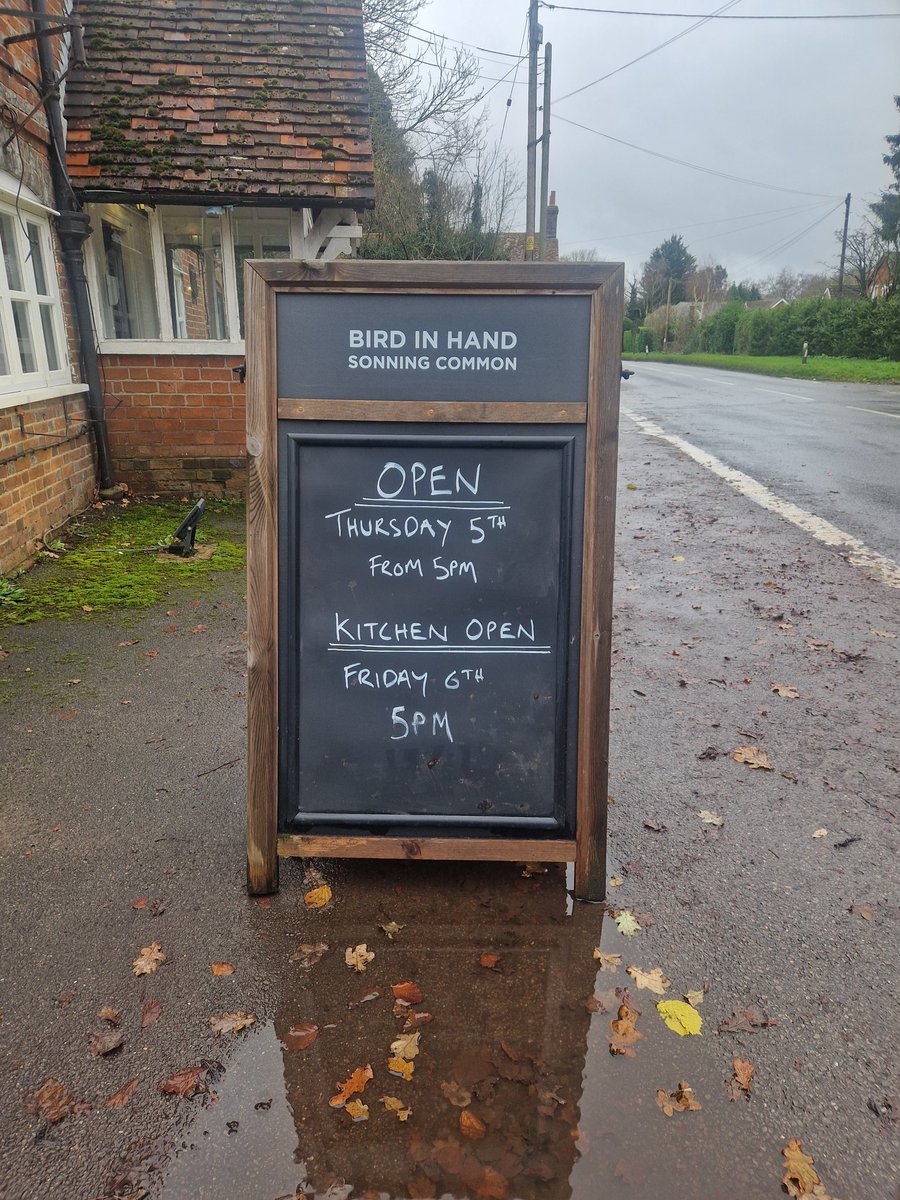 BIRD IN HAND
SONNING COMMON
OPEN
THURSDAY 5TH
FROM 5PM
KITCHEN OPEN
FRIDAY 6TH
5PM